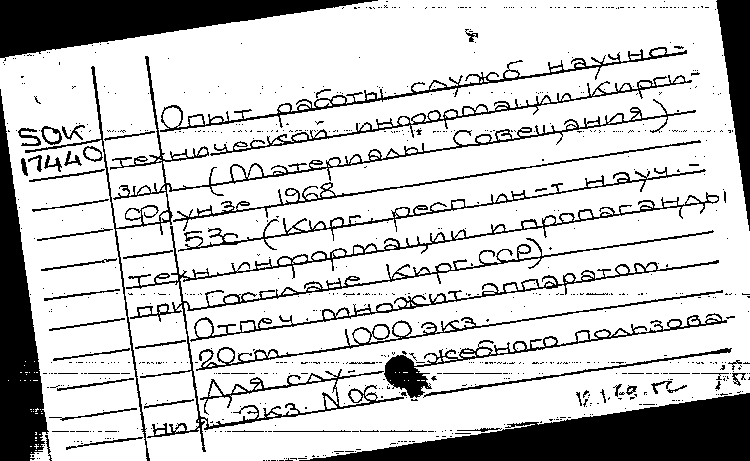 50К
17440
Опыт работы служб научно-
технической информации Кирги-
зии. (Материалы Совещания).
Фрунзе, 1968.
53с. (Кирг. респ. ин-т науч.-
техн. информации и пропаганды
при Госплане Кирг.ССР).
Отпеч. множит. аппаратом.
20см. 1000 экз.
Для слу- жебного пользова-
ния. Экз. N 06.